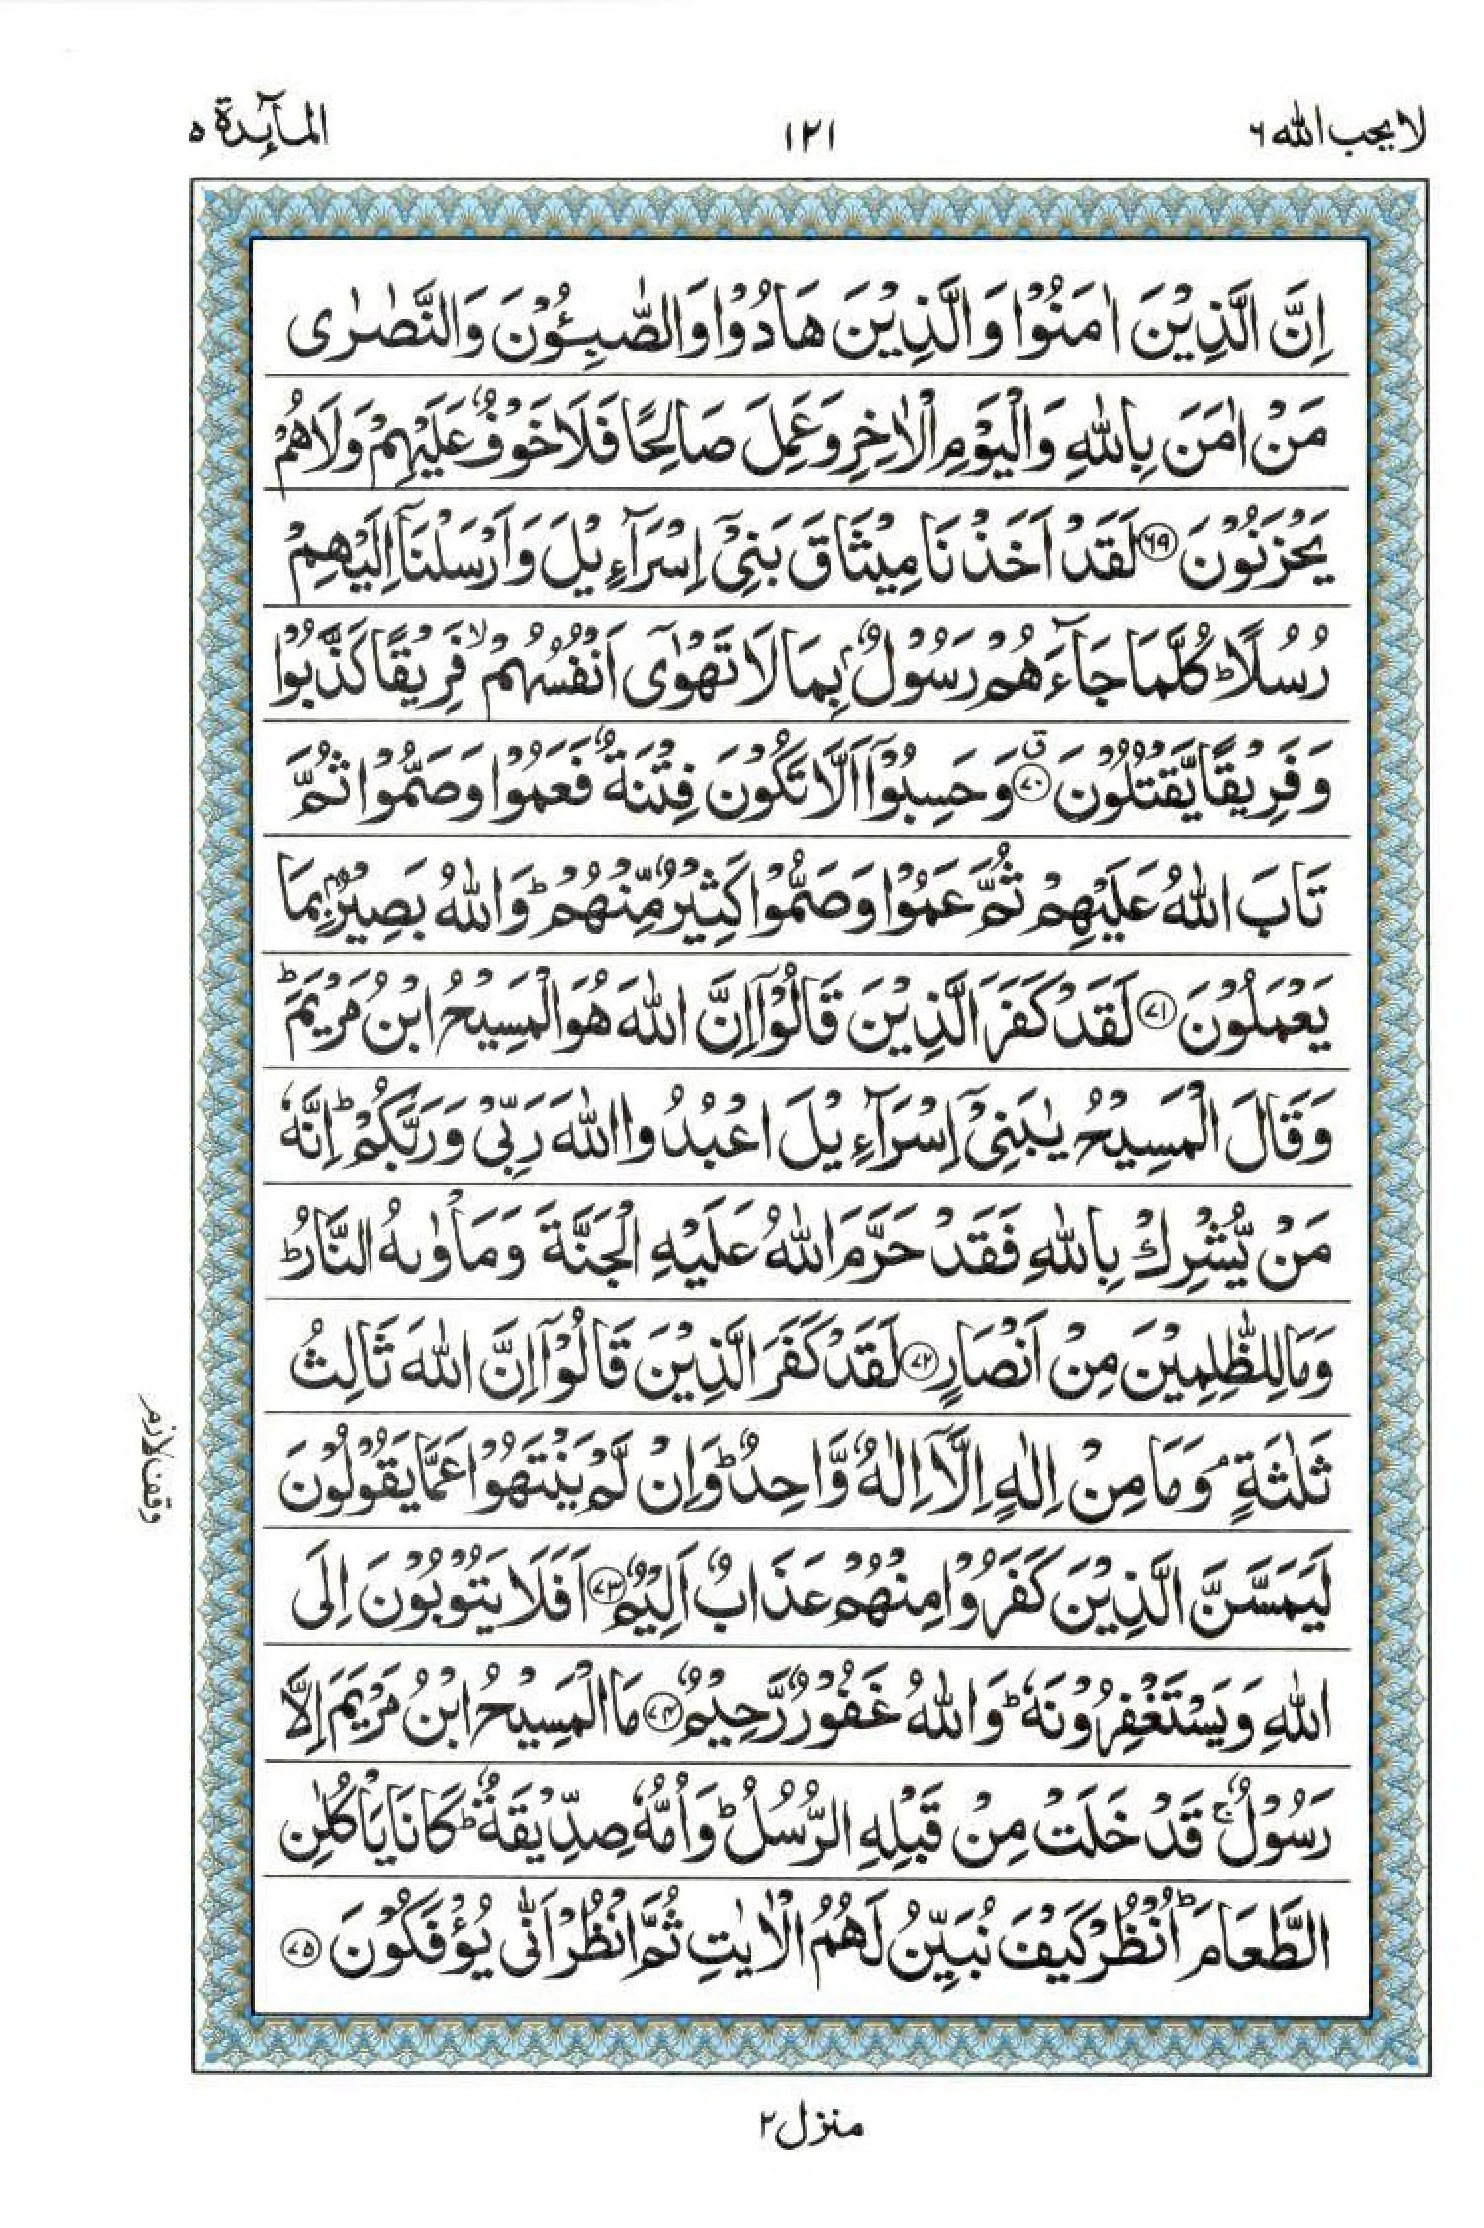 لا یحب الله ۶
۱۲۱
المآئدة ۵
اِنَّ الَّذِیْنَ اٰمَنُوْا وَالَّذِیْنَ هَادُوْا وَالصّٰبِـُٔوْنَ وَالنَّصٰرٰی
مَنْ اٰمَنَ بِاللّٰهِ وَالْیَوْمِ الْاٰخِرِ وَعَمِلَ صَالِحًا فَلَا خَوْفٌ عَلَیْهِمْ وَلَا هُمْ
یَحْزَنُوْنَ ﴿۶۹﴾ لَقَدْ اَخَذْنَا مِیْثَاقَ بَنِیْۤ اِسْرَآءِیْلَ وَاَرْسَلْنَاۤ اِلَیْهِمْ
رُسُلًا ؕ كُلَّمَا جَآءَهُمْ رَسُوْلٌۢ بِمَا لَا تَهْوٰۤی اَنْفُسُهُمْ ۙ فَرِیْقًا كَذَّبُوْا
وَفَرِیْقًا یَّقْتُلُوْنَ ﴿۷۰﴾ۗ وَحَسِبُوْۤا اَلَّا تَكُوْنَ فِتْنَةٌ فَعَمُوْا وَصَمُّوْا ثُمَّ
تَابَ اللّٰهُ عَلَیْهِمْ ثُمَّ عَمُوْا وَصَمُّوْا كَثِیْرٌ مِّنْهُمْ ؕ وَاللّٰهُ بَصِیْرٌۢ بِمَا
یَعْمَلُوْنَ ﴿۷۱﴾ لَقَدْ كَفَرَ الَّذِیْنَ قَالُوْۤا اِنَّ اللّٰهَ هُوَ الْمَسِیْحُ ابْنُ مَرْیَمَ ؕ
وَقَالَ الْمَسِیْحُ یٰبَنِیْۤ اِسْرَآءِیْلَ اعْبُدُوا اللّٰهَ رَبِّیْ وَرَبَّكُمْ ؕ اِنَّهٗ
مَنْ یُّشْرِكْ بِاللّٰهِ فَقَدْ حَرَّمَ اللّٰهُ عَلَیْهِ الْجَنَّةَ وَمَاْوٰىهُ النَّارُ ؕ
وَمَا لِلظّٰلِمِیْنَ مِنْ اَنْصَارٍ ﴿۷۲﴾ لَقَدْ كَفَرَ الَّذِیْنَ قَالُوْۤا اِنَّ اللّٰهَ ثَالِثُ
ثَلٰثَةٍ ۘ وَمَا مِنْ اِلٰهٍ اِلَّاۤ اِلٰهٌ وَّاحِدٌ ؕ وَاِنْ لَّمْ یَنْتَهُوْا عَمَّا یَقُوْلُوْنَ
وقف لازم
لَیَمَسَّنَّ الَّذِیْنَ كَفَرُوْا مِنْهُمْ عَذَابٌ اَلِیْمٌ ﴿۷۳﴾ اَفَلَا یَتُوْبُوْنَ اِلَی
اللّٰهِ وَیَسْتَغْفِرُوْنَهٗ ؕ وَاللّٰهُ غَفُوْرٌ رَّحِیْمٌ ﴿۷۴﴾ مَا الْمَسِیْحُ ابْنُ مَرْیَمَ اِلَّا
رَسُوْلٌ ۚ قَدْ خَلَتْ مِنْ قَبْلِهِ الرُّسُلُ ؕ وَاُمُّهٗ صِدِّیْقَةٌ ؕ كَانَا یَاْكُلٰنِ
الطَّعَامَ ؕ اُنْظُرْ كَیْفَ نُبَیِّنُ لَهُمُ الْاٰیٰتِ ثُمَّ انْظُرْ اَنّٰی یُؤْفَكُوْنَ ﴿۷۵﴾
منزل ۲